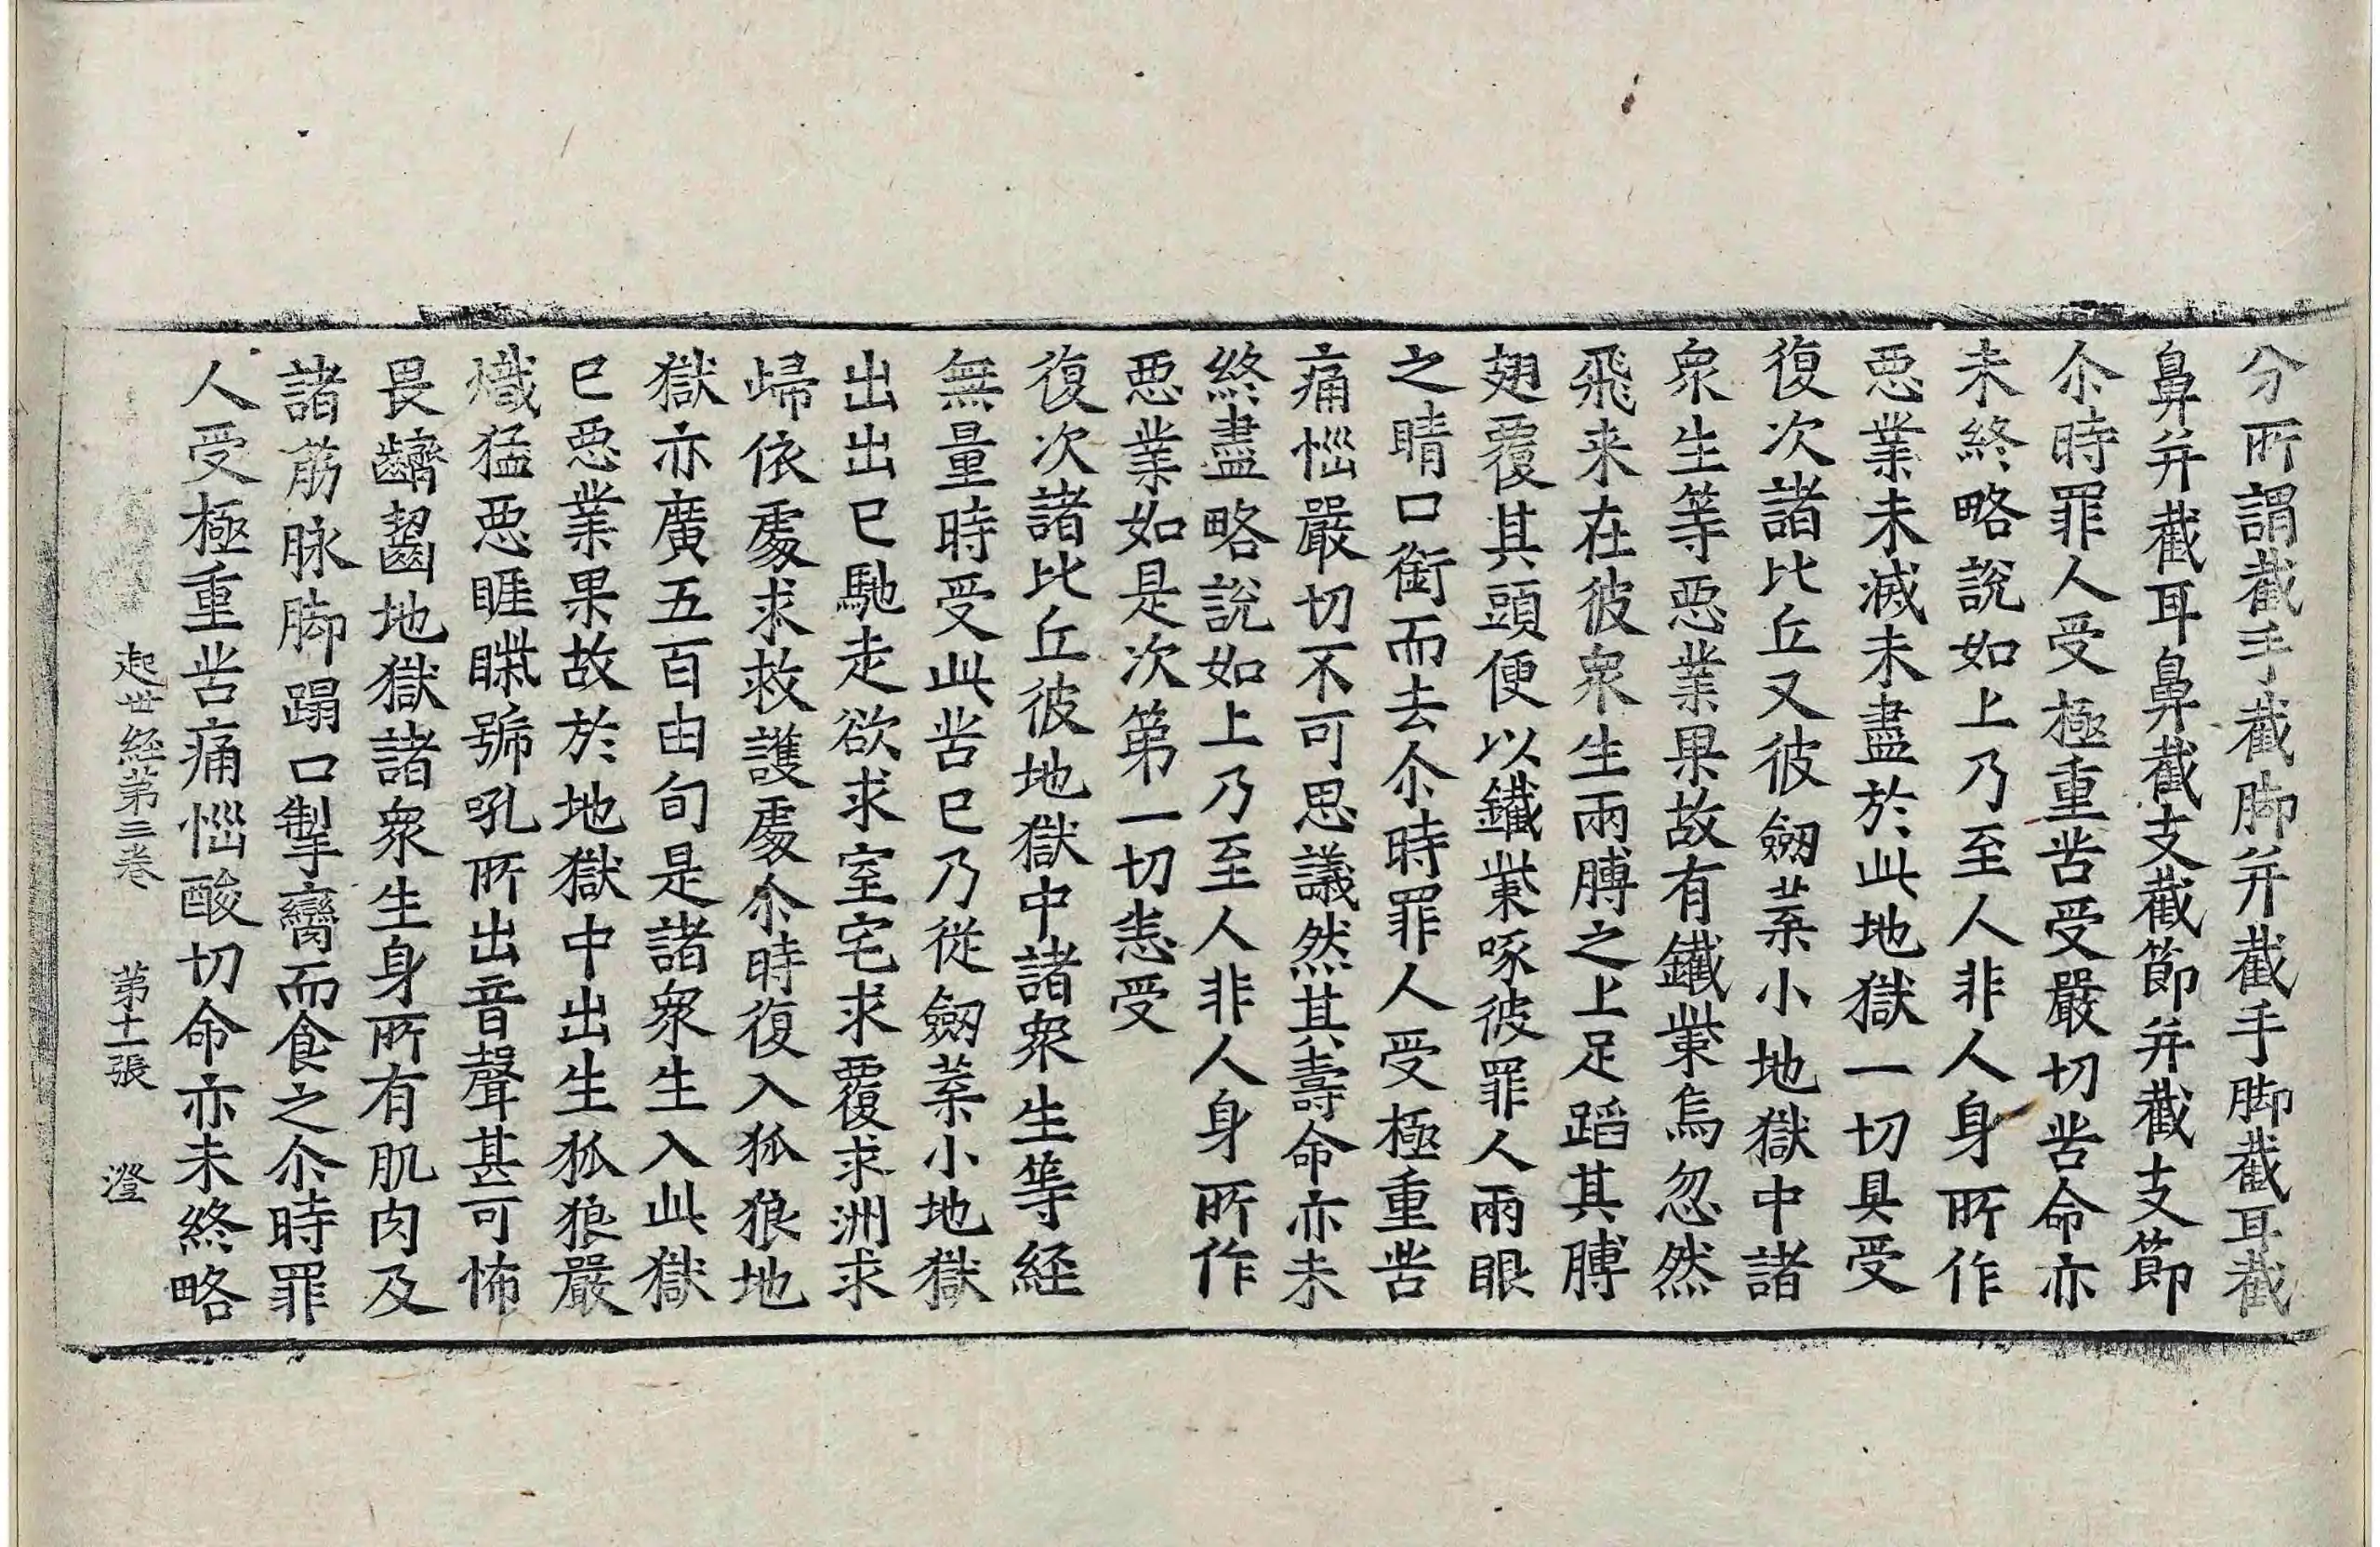 分所謂截手截脚并截手脚截耳截
鼻并截耳鼻截支截節并截支節
尒時罪人受極重苦受嚴切苦命亦
未終略說如上乃至人非人身所作
惡業未滅未盡於此地獄一切具受
復次諸比丘又彼劒葉小地獄中諸
衆生等惡業果故有鐵㭰烏忽然
飛来在彼衆生兩膊之上足蹈其膊
翅覆其頭便以鐵㭰啄彼罪人兩眼
之睛口銜而去尒時罪人受極重苦
痛惱嚴切不可思議然其壽命亦未
終盡略說如上乃至人非人身所作
惡業如是次第一切悉受
復次諸比丘彼地獄中諸衆生等経
無量時受此苦已乃從劒葉小地獄
出出已馳走欲求室宅求覆求洲求
歸依處求救護處尒時復入狐狼地
獄亦廣五百由旬是諸衆生入此獄
已惡業果故於地獄中出生狐狼嚴
熾猛惡睚㗼號吼所出音聲甚可怖
畏齩齧地獄諸衆生身所有肌肉及
諸筋脉脚蹋口掣臠而食之尒時罪
人受極重苦痛惱酸切命亦未終略
起世経第三卷 第十二張 澄